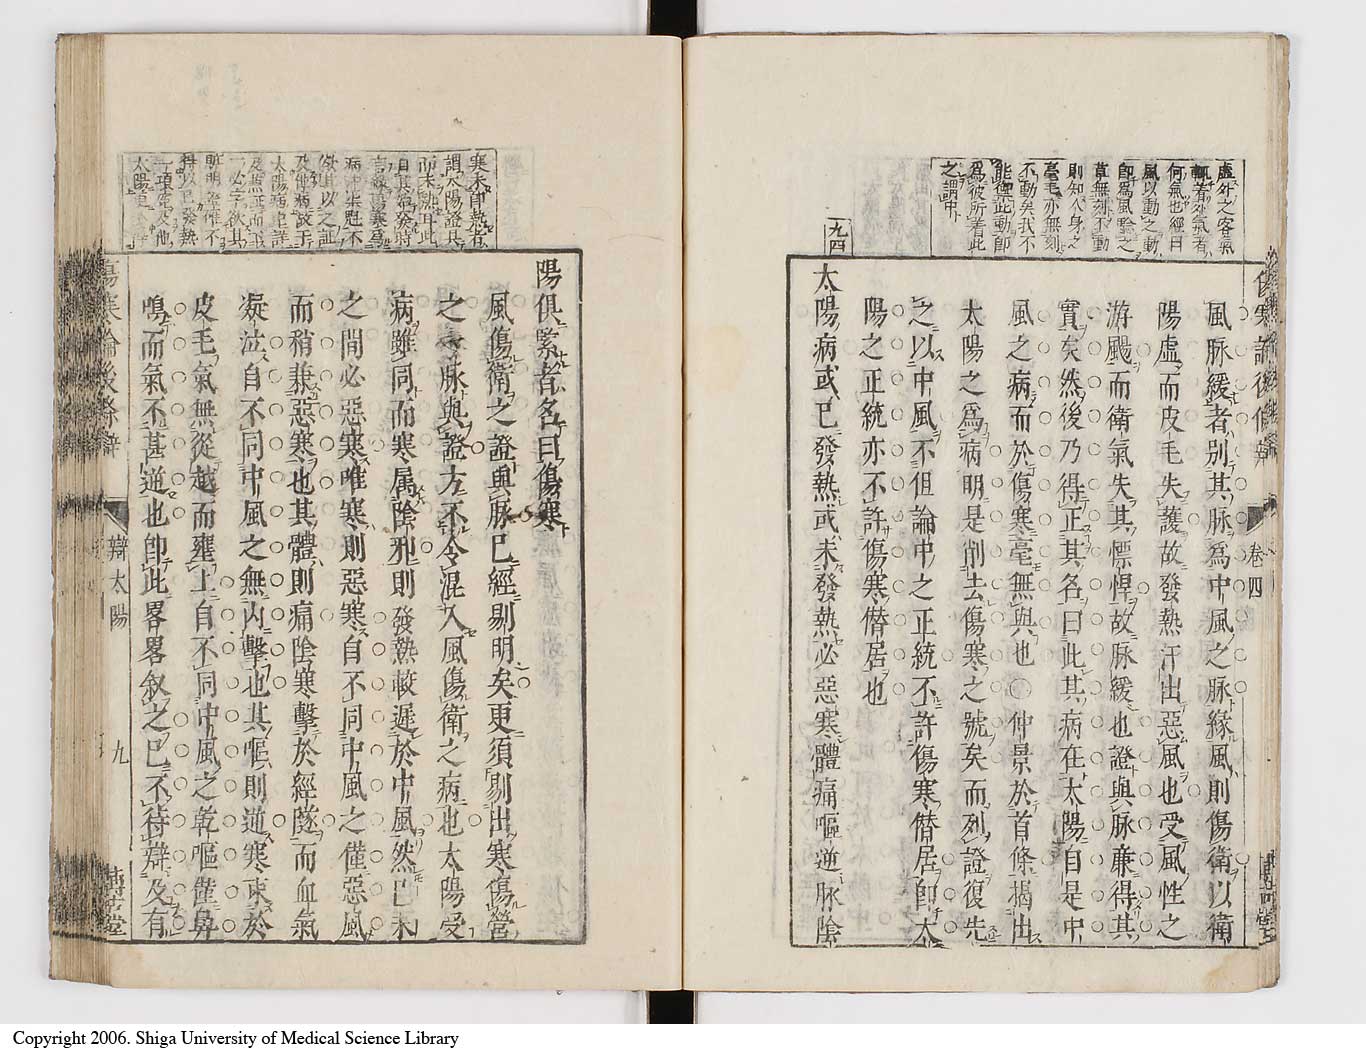 虚外之客氣
輒著外氣者
何氣也經曰
風以動之動
卽爲風驗之
草無刻不動
則知人身之
毫毛亦無刻
不動矣我不
能御此動卽
爲彼所著此
之謂中
卷四
風脉緩者别其脉爲中風之脉緣風則傷衛以衛
陽虚而皮毛失護故發熱汗出惡風也受風性之
游颺而衛氣失其慓悍故脉緩也證與脉兼得其
實矣然後乃得正其名曰此其病在太陽自是中
風之病而於傷寒毫無與也○仲景於首條揭出
太陽之爲病明是削去傷寒之號矣而列證復先
之以中風不但論中之正統不許傷寒僭居卽太
陽之正統亦不許傷寒僭居也
九四
太陽病或已發熱或未發熱必惡寒體痛嘔逆脉陰
寒未卽熱者
謂太陽證具
而未
太陽病也詳
陽俱緊者名曰傷寒
風傷衛之證與脉已經剔明矣更須剔出寒傷營
之證脉與證方不令混入風傷衛之病也太陽受
病雖同而寒属陰邪則發熱較遲於中風然已未
之間必惡寒唯寒則惡寒自不同中風之僅惡風
而稍兼惡寒也其體則痛陰寒擊於經隧而血氣
凝泣自不同中風之無内擊也其嘔則逆寒束於
皮毛氣無從越而壅上自不同中風之乾嘔僅鼻
鳴而氣不甚逆也卽此畧畧敘之已不待辯及有
傷寒論後條辯
辯太陽
九
Copyright 2006. Shiga University of Medical Science Library